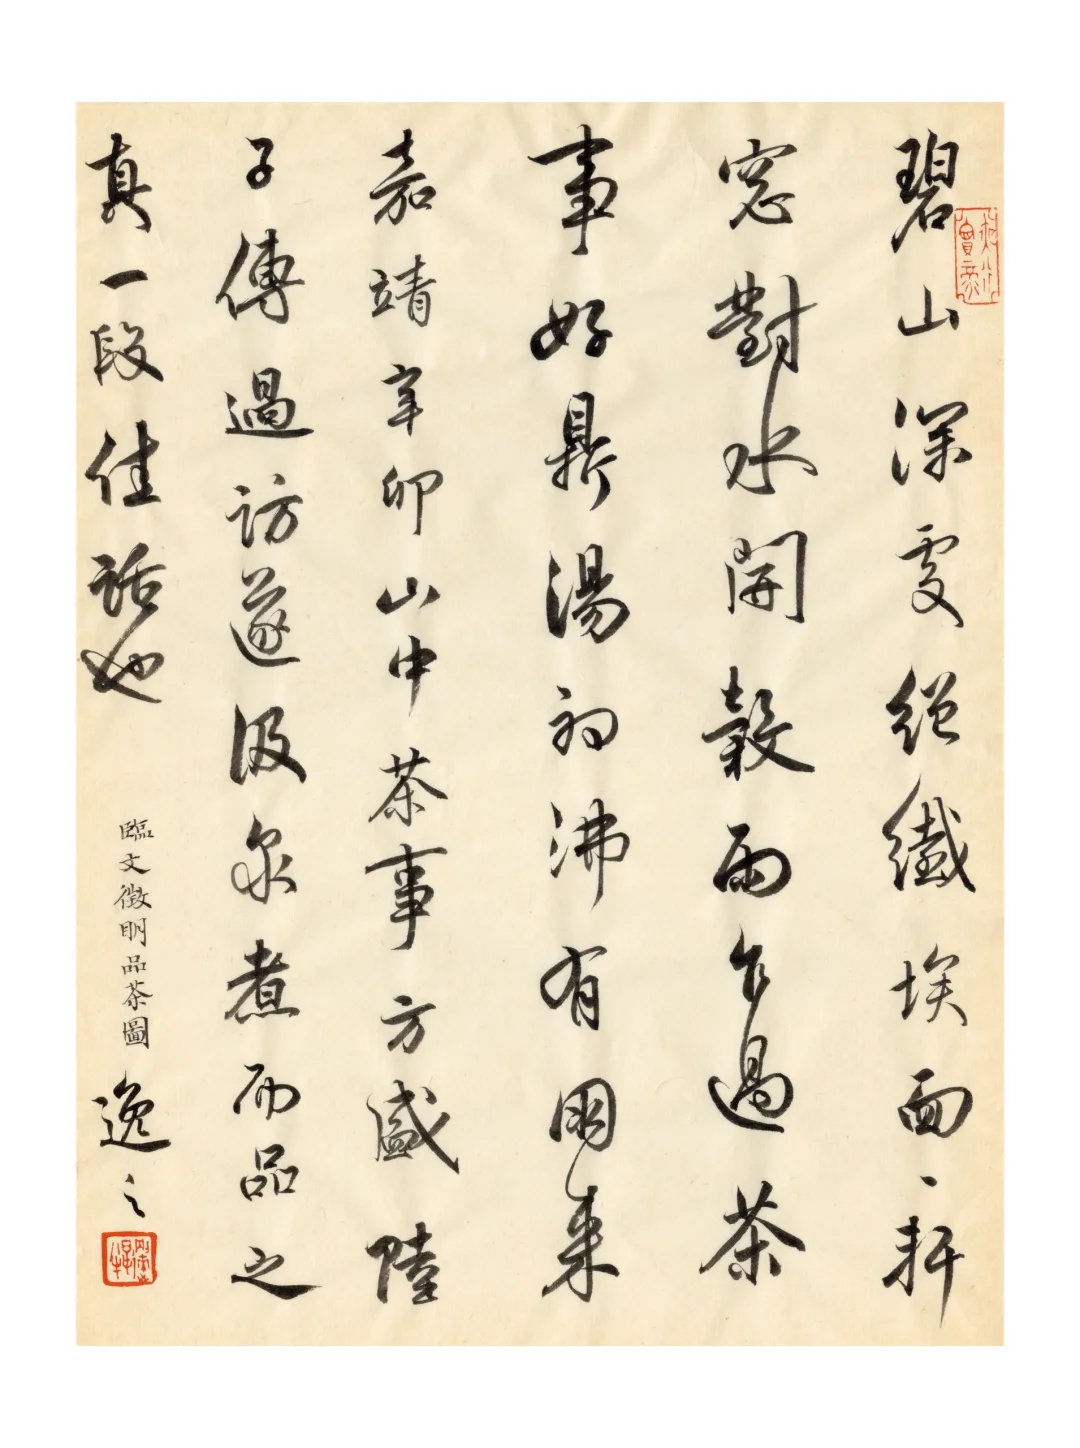 碧山深處絕纖埃面、軒
窓對水開穀雨乍過茶
事好鼎湯初沸有朋来
嘉靖辛卯山中茶事方盛陸
子傳過訪遂汲泉煮而品之
真一段佳話也
臨文徵明品茶圖
逸之